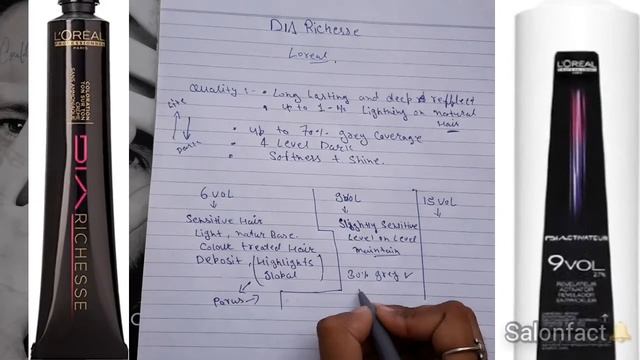 L'ORÉAL
PROFESSIONNEL
PARIS
COLORATION
TON SUR TON
SANS AMMONIAQUE
DIA RICHESSE
DIA Richesse
Loreal
Quality :- • Long lasting and deep reflect
• up to 1-th Lightning on natural
Hair
• up to 70% grey Coverage
• 4 Level Dark
• Softness + Shine.
6 vol
Sensitive Hair
Light, natur Base.
Colour treated Hair
Deposit, (Highlights
Global)
Porus
9vol
Slightly Sensitive
Level on Level
maintain
30% grey ✓
15 vol
L'ORÉAL
DIACTIVATEUR
9 VOL
2.7%
RÉVÉLATEUR
ACTIVATOR
REVELADOR
ENTWICKLER
Salonfact🔔